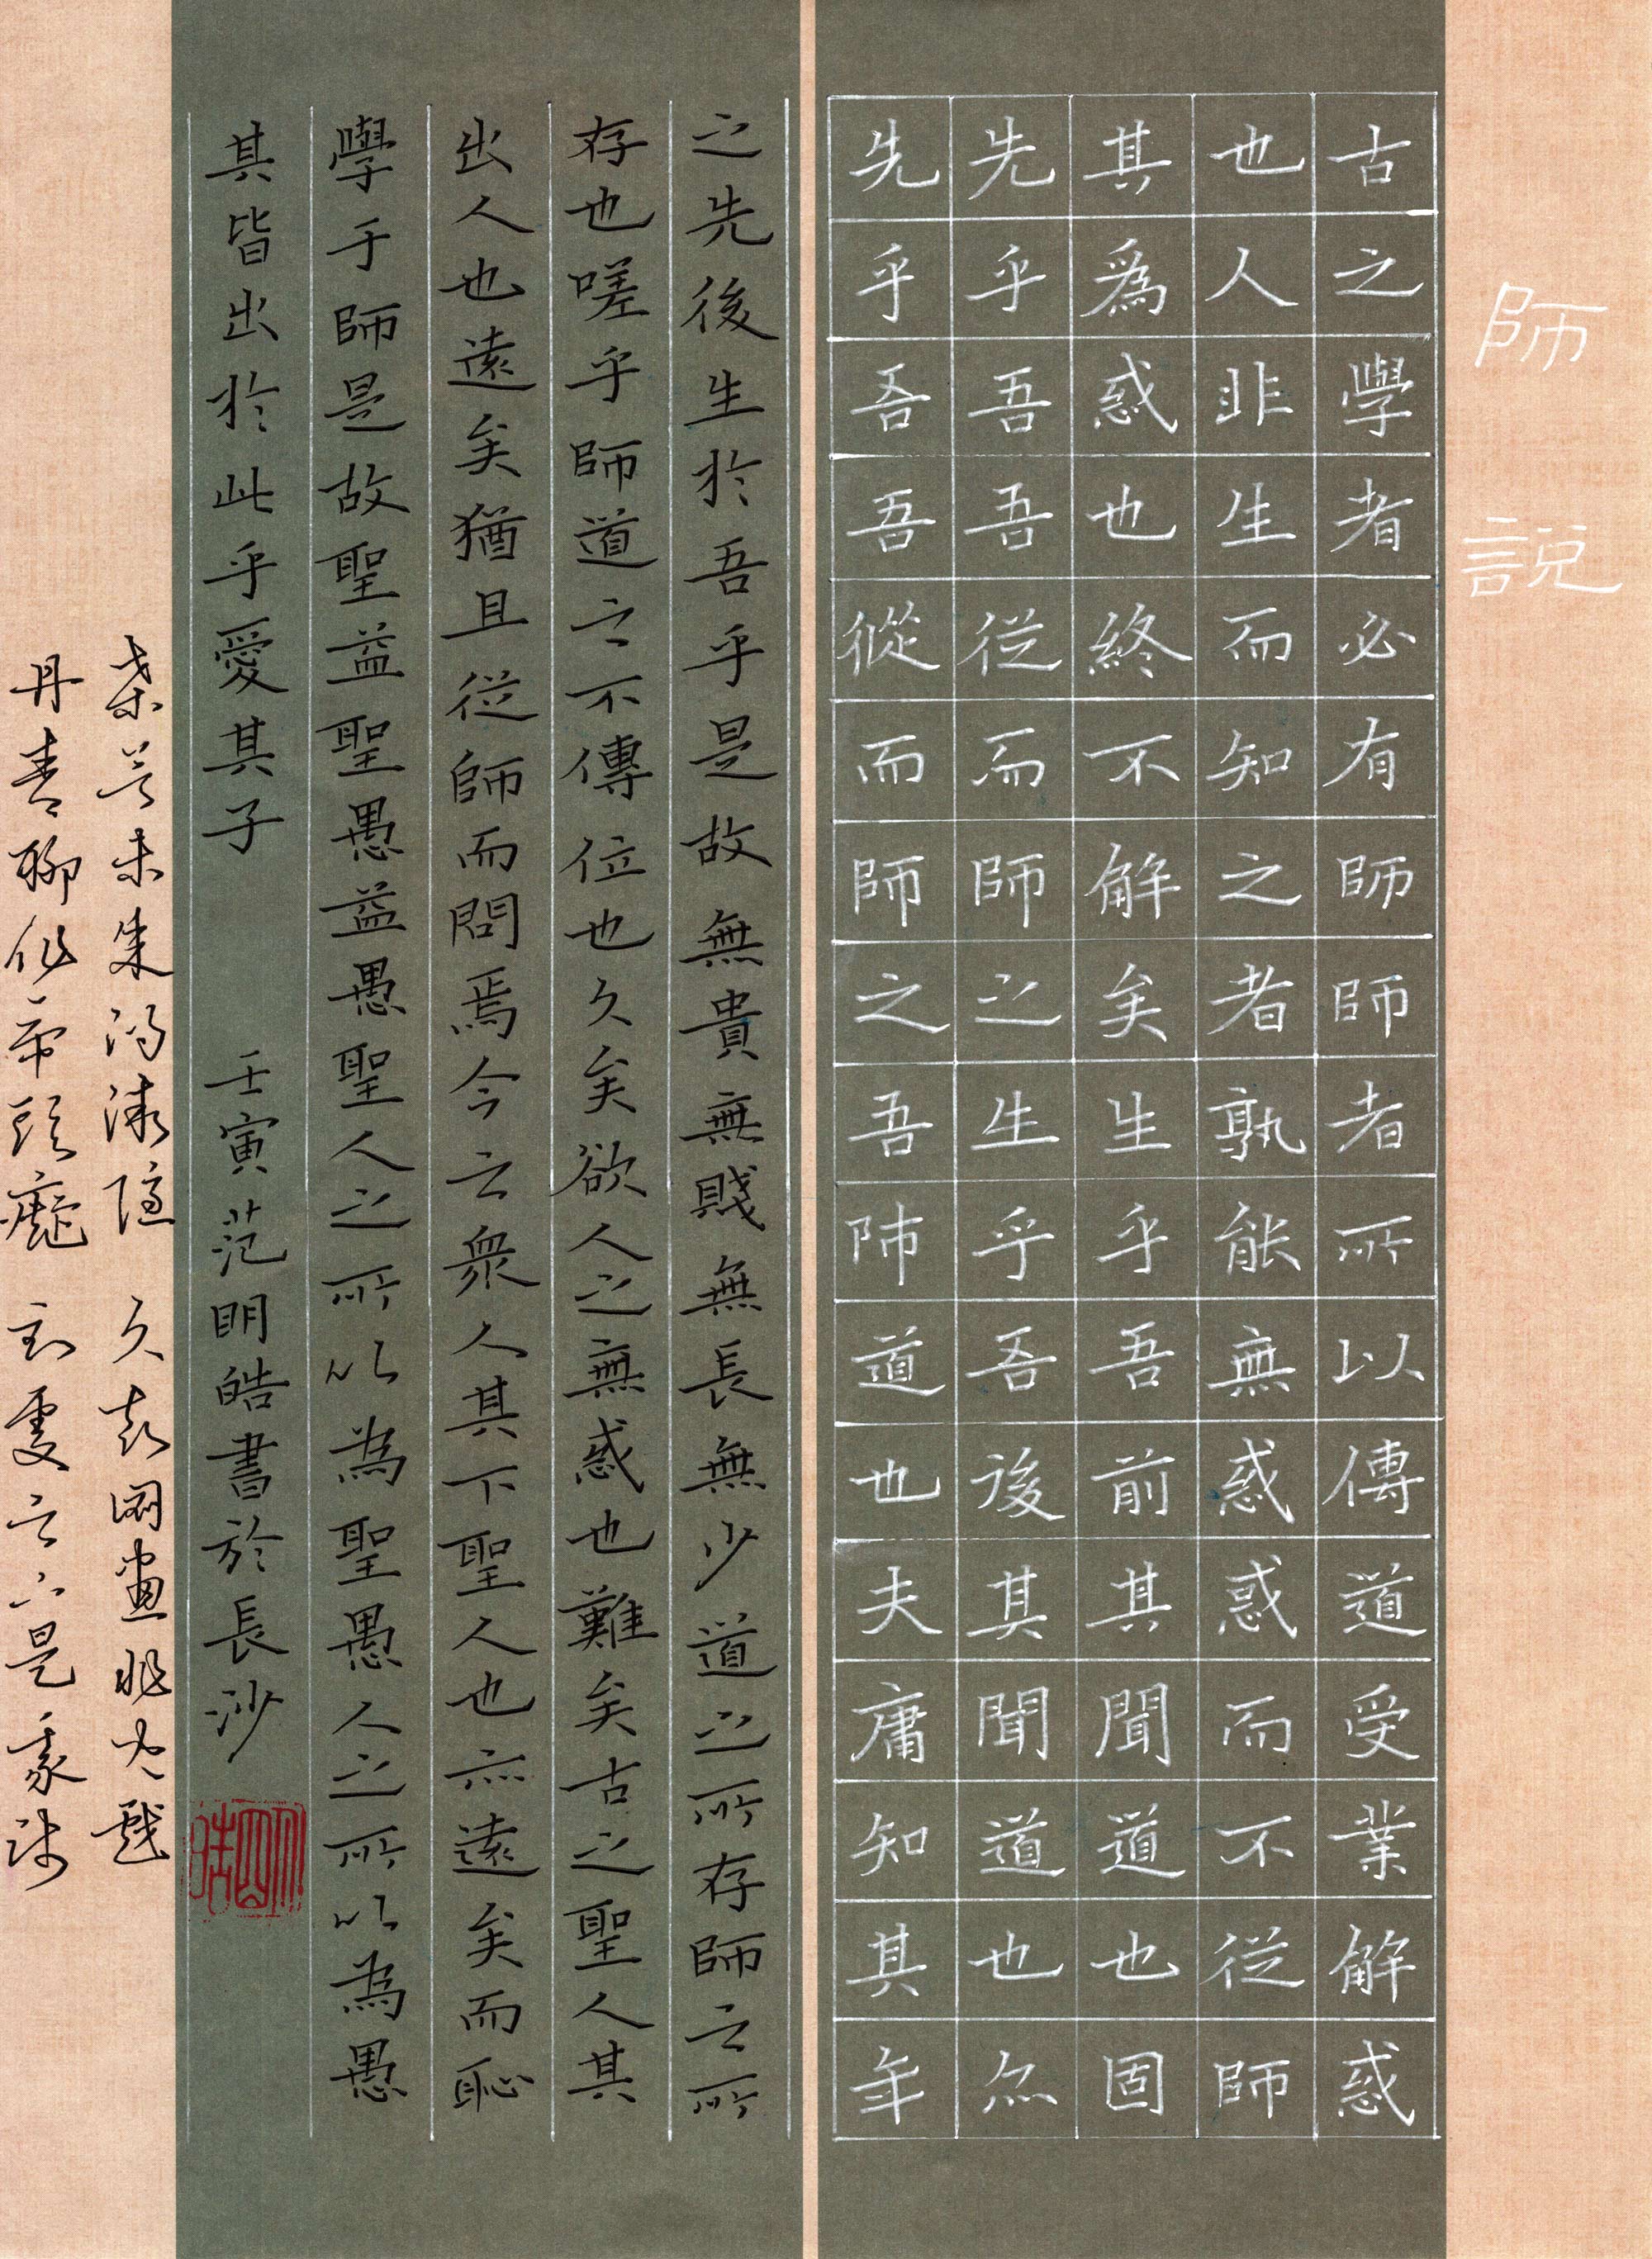 師說
古之學者必有師師者所以傳道受業解惑
也人非生而知之者孰能無惑惑而不從師
其爲惑也終不解矣生乎吾前其聞道也固
先乎吾吾從而師之生乎吾後其聞道也亦
先乎吾吾從而師之吾師道也夫庸知其年
之先後生於吾乎是故無貴無賤無長無少道之所存師之所
存也嗟乎師道之不傳位也久矣欲人之無惑也難矣古之聖人其
出人也遠矣猶且從師而問焉今之眾人其下聖人也亦遠矣而恥
學于師是故聖益聖愚益愚聖人之所以為聖愚人之所以為愚
其皆出於此乎愛其子 壬寅范明皓書於長沙
丹青聊作頭癡 到處云山是我師